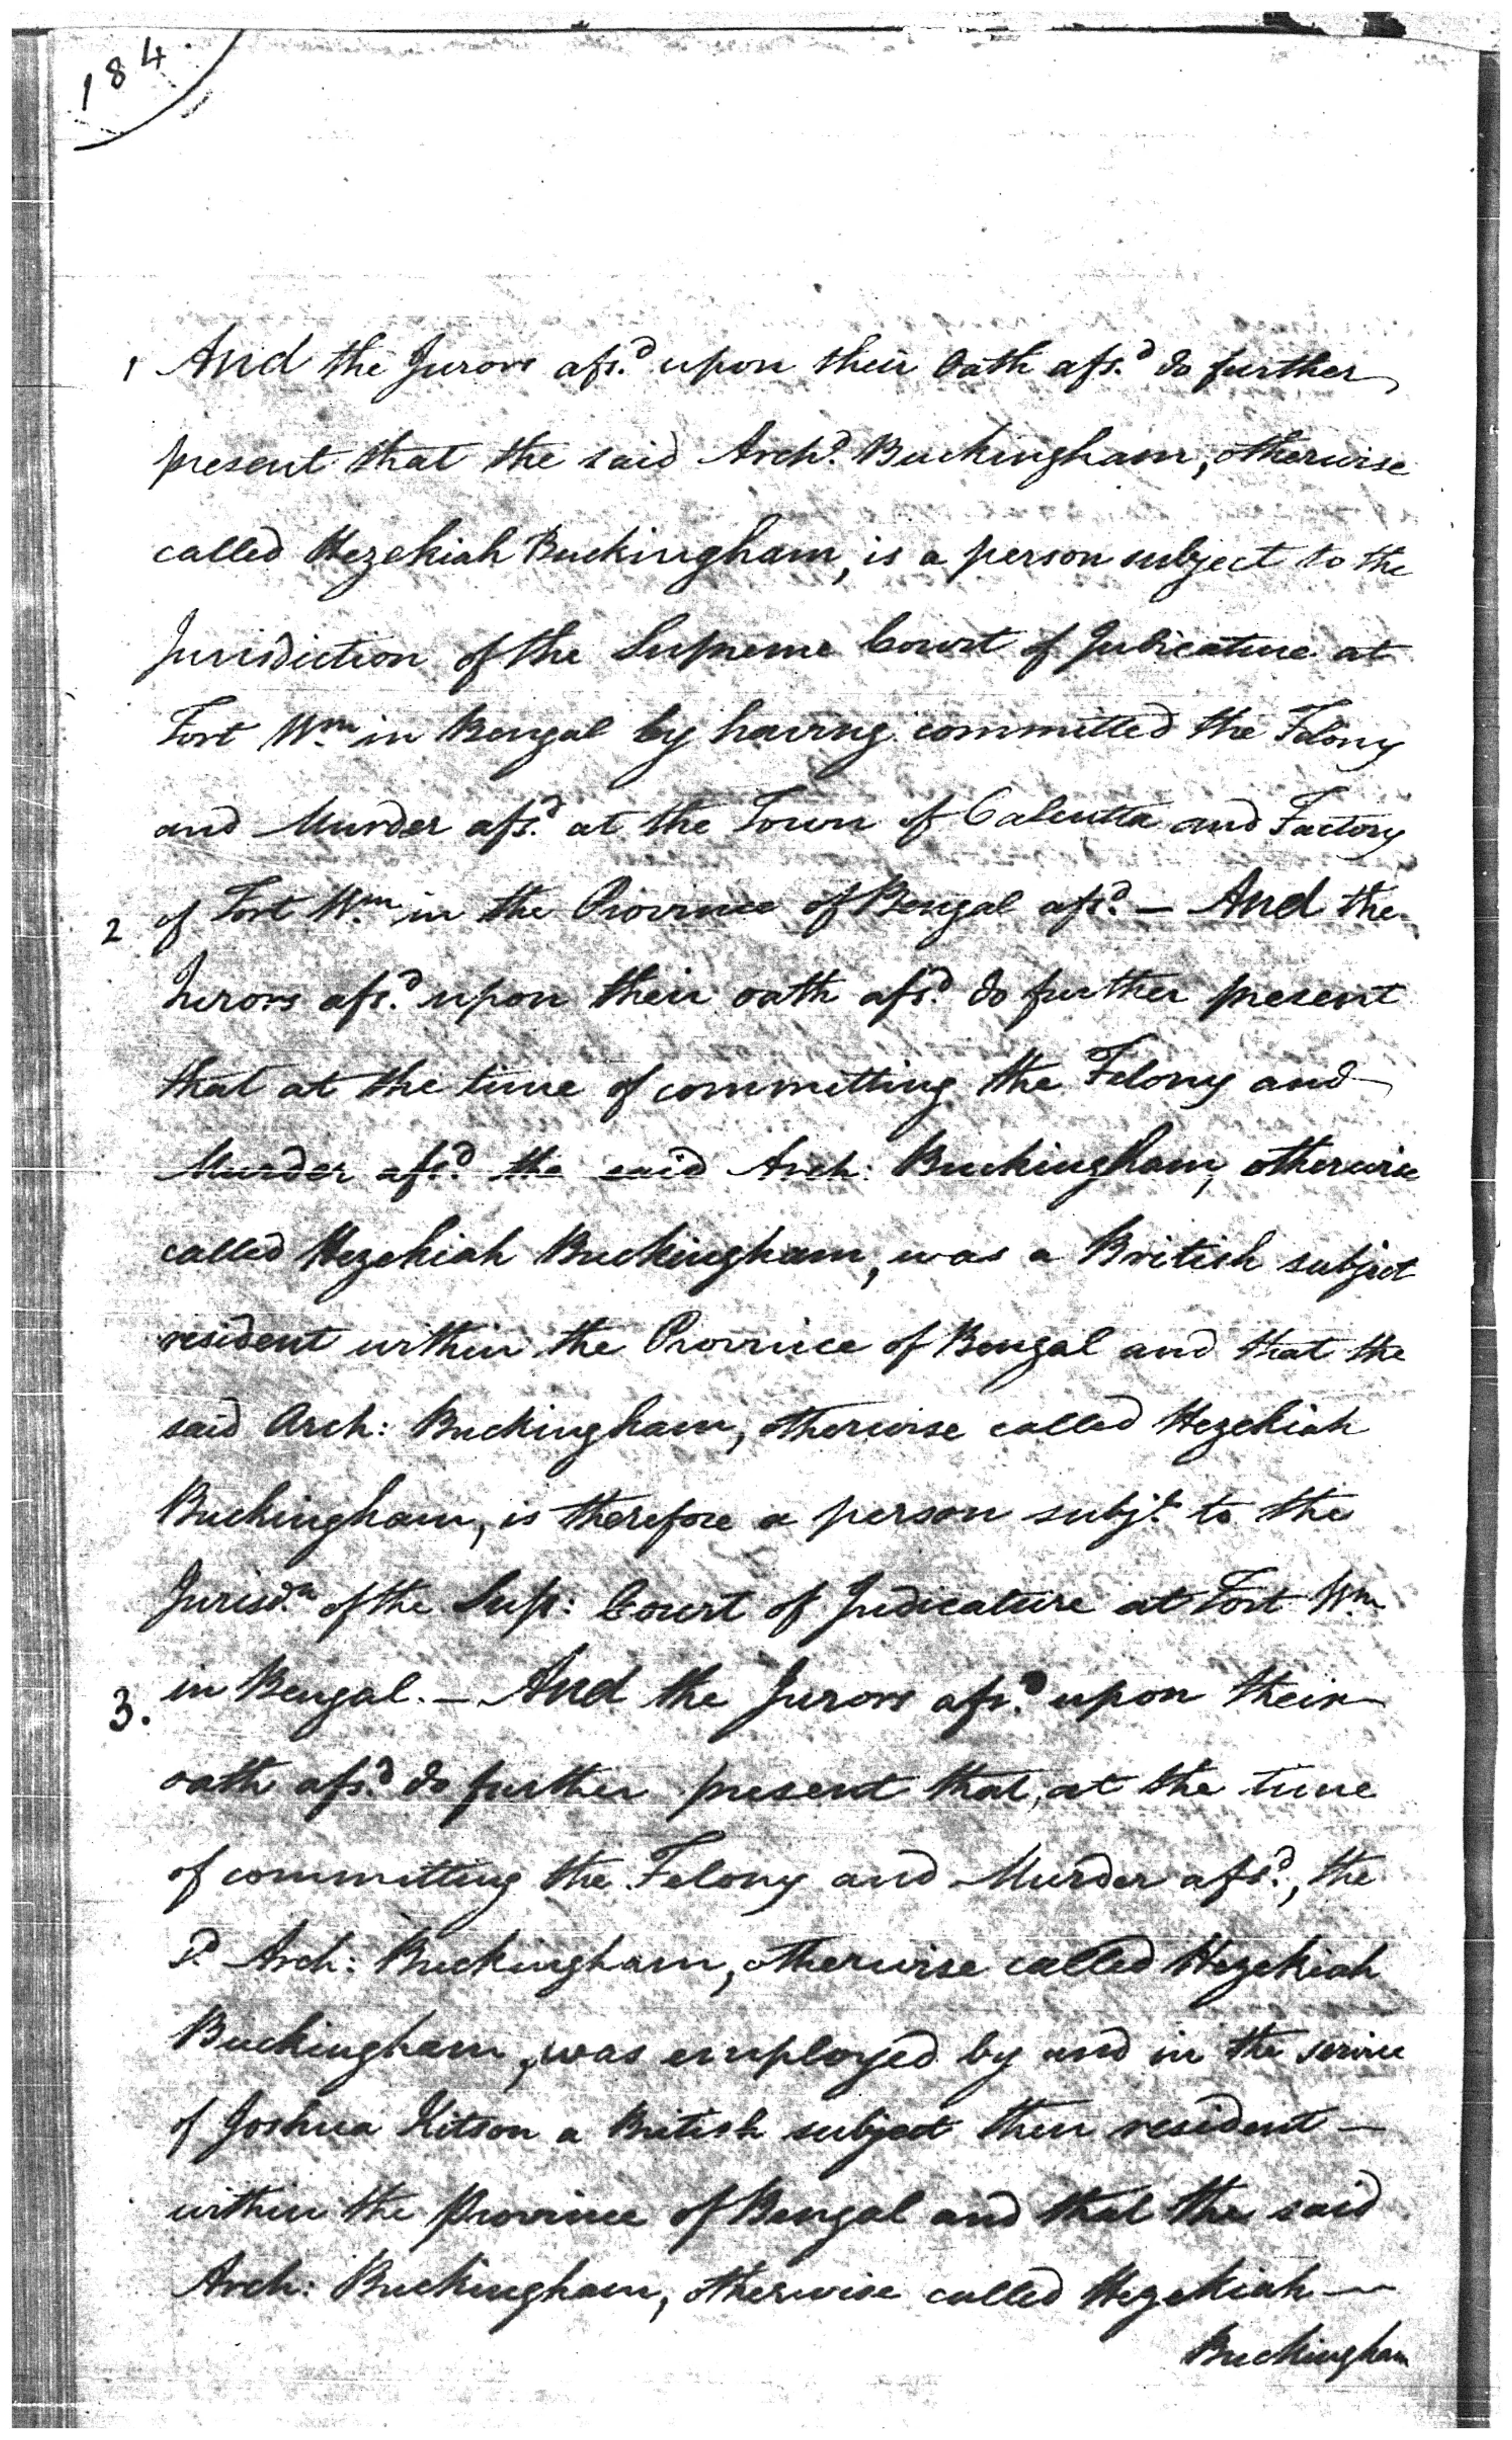 184
1 And the Jurors afsd. upon their Oath afsd. do further
present that the said Archd. Buckingham, otherwise
called Hezekiah Buckingham, is a person subject to the
Jurisdiction of the Supreme Court of Judicature at
Fort Wm. in Bengal by having committed the Felony
and Murder afsd. at the Town of Calcutta and Factory
2 of Fort Wm. in the Province of Bengal afsd. — And the
Jurors afsd. upon their oath afsd. do further present
that at the time of committing the Felony and
Murder afsd. the said Arch: Buckingham, otherwise
called Hezekiah Buckingham, was a British subject
resident within the Province of Bengal and that the
said Arch: Buckingham, otherwise called Hezekiah
Buckingham, is therefore a person subjt. to the
Jurisdn. of the Sup: Court of Judicature at Fort Wm.
3. in Bengal. — And the Jurors afsd. upon their
oath afsd. do further present that, at the time
of committing the Felony and Murder afsd., the
sd. Arch: Buckingham, otherwise called Hezekiah
Buckingham, was employed by and in the service
of Joshua Kitson a British subject then resident —
within the Province of Bengal and that the said
Arch: Buckingham, otherwise called Hezekiah —
Buckingham